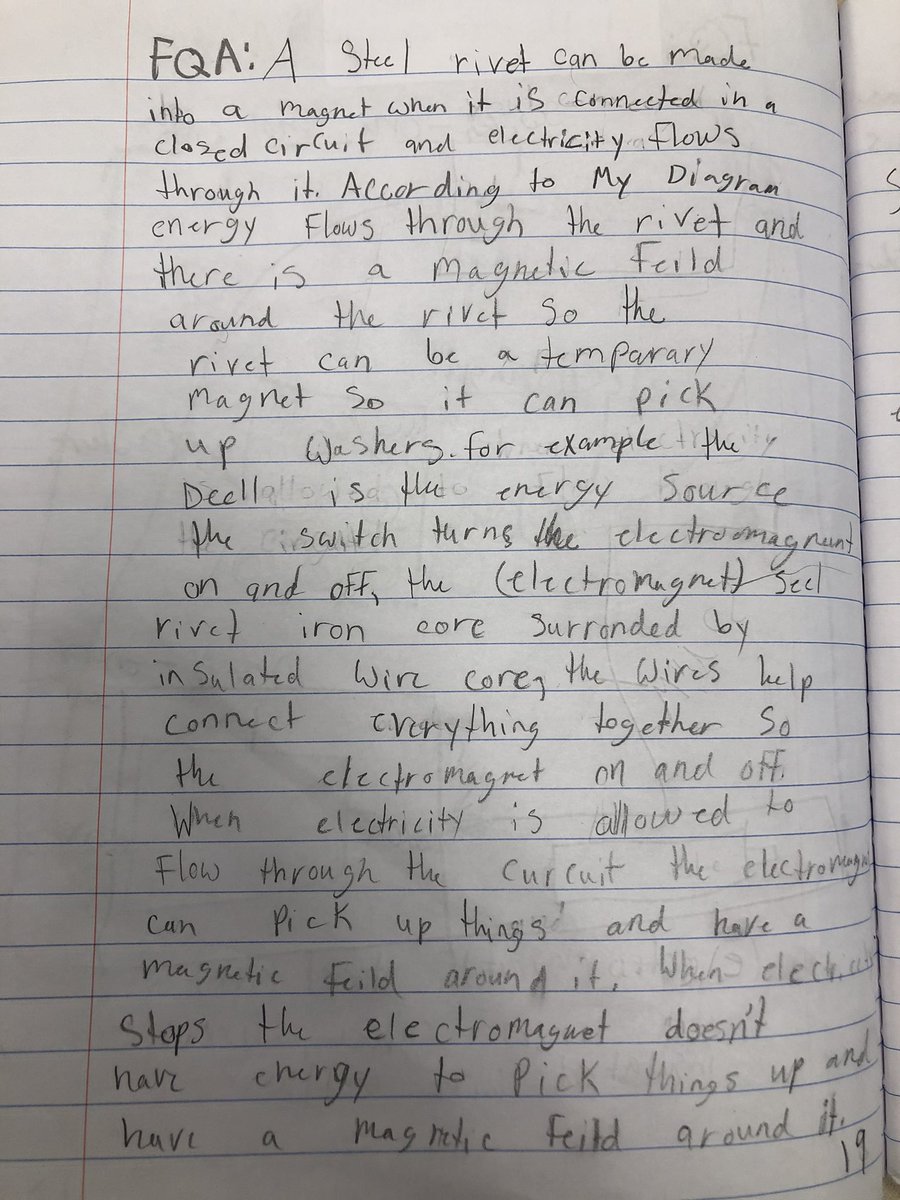 FQA: A Steel rivet can be made
into a magnet when it is connected in a
closed circuit and electricity flows
through it. According to My Diagram
energy Flows through the rivet and
there is a magnetic feild
around the rivet so the
rivet can be a temparary
magnet so it can pick
up washers. for example the
Dcell is the energy source
the switch turns the electromagnent
on and off, the (electromagnet) Seel
rivet iron core surronded by
insulated wire core, the wires help
connect everything together so
the electromagnet on and off.
When electricity is allowed to
Flow through the curcuit the
can pick up things and have a
magnetic feild around it. When
Stops the electromagnet doesn't
have energy to pick things up and
have a magnetic feild around it.
19